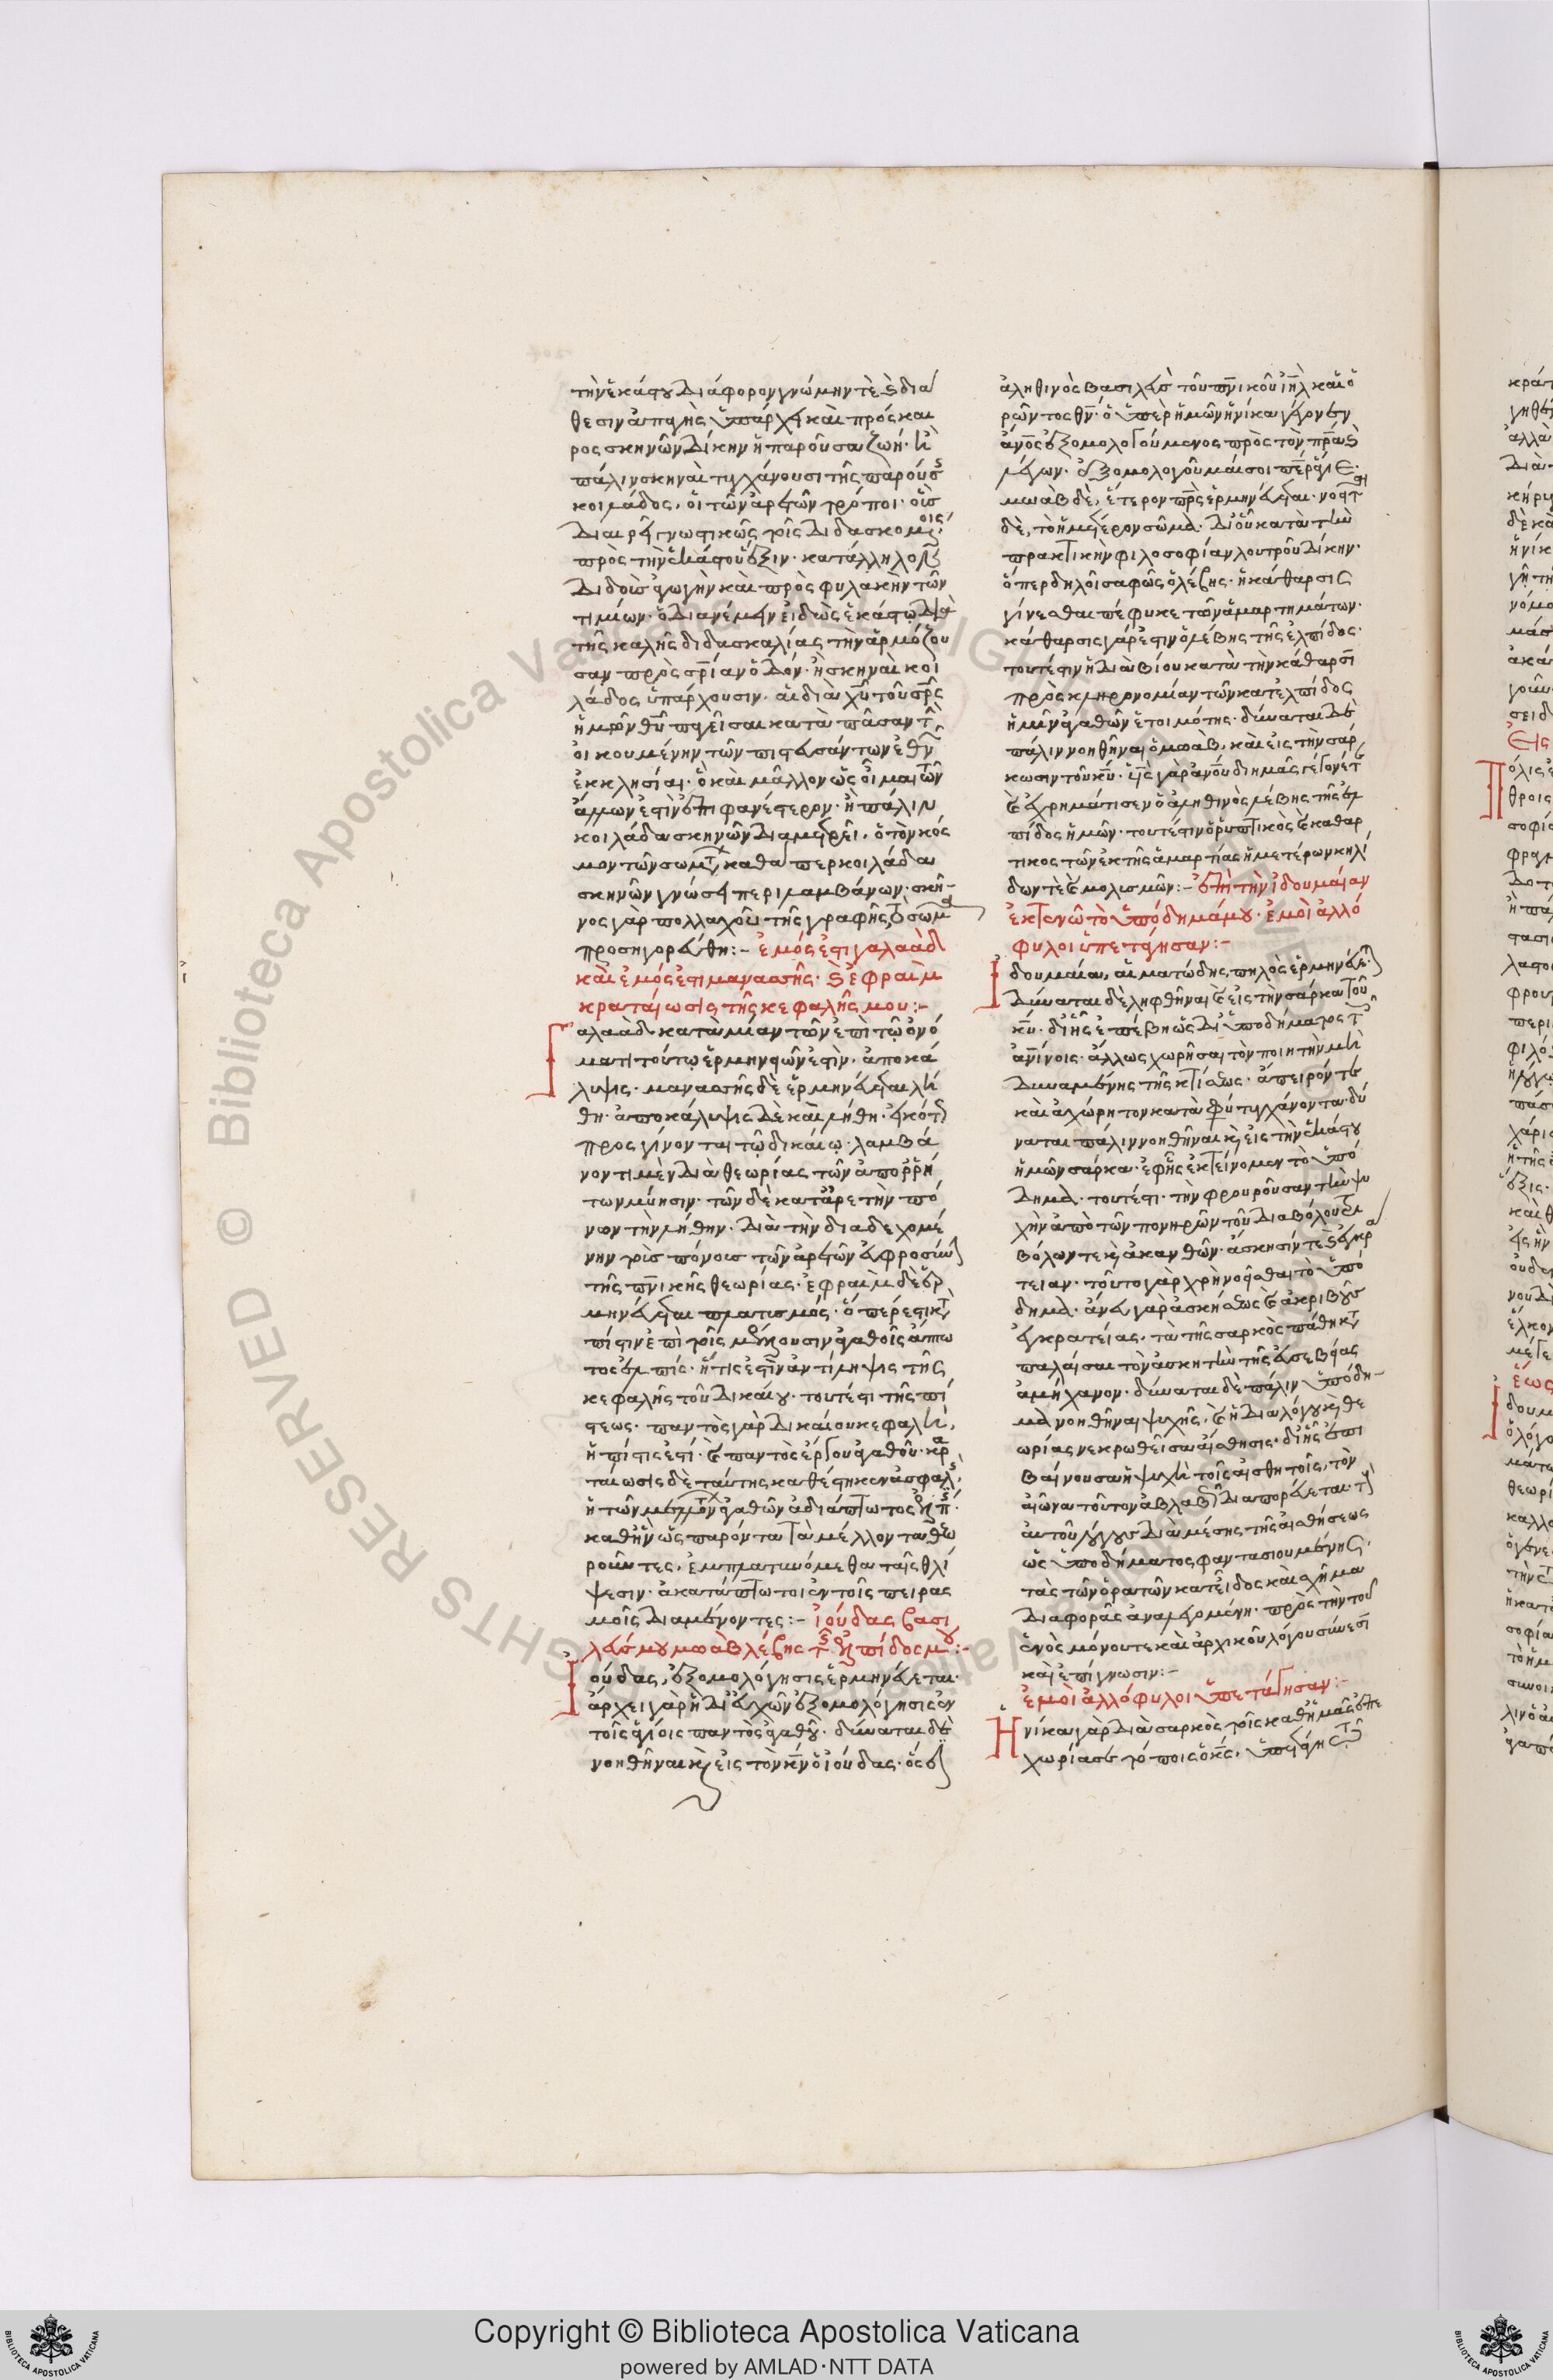 τὴν ἑκάστου διάφορον γνώμην τὲ καὶ διά
θεσιν ἀπιστίης ὑπάρχει καὶ πρόσκαι
ρος σκηνῶν δίκην ἡ παροῦσα ζωή· ἢ
πάλιν σκηναὶ τυγχάνουσι τῆς παρούσ
κοιλάδος, οἱ τῶν ἀρετῶν τρόποι· οὓς
διαιρεῖ γνωστικῶς τοῖς διδασκομένοις
πρὸς τὴν ἑκάστου ἕξιν· κατάλληλον
διδοὺς ἀγωγὴν καὶ πρὸς φυλακὴν τῶν
τιμίων· ὁ διανέμειν εἰδὼς ἑκάστω διὰ
τῆς καλῆς διδασκαλίας τὴν ἁρμόζου
σαν πρὸς σρίαν ὁδόν· ἢ σκηναὶ κοι
λάδος ὑπάρχουσιν· αἱ διὰ χυ τοῦ σρς
ἡμῶν θυ παγεῖσαι κατὰ πᾶσαν τὴν
οἰκουμένην τῶν πιστευσάντων ἐθν
ἐκκλησίαι· ὃ καὶ μᾶλλον ὡς οἶμαι τῶν
ἄλλων ἐστὶν ἐπιφανέστερον· ἢ πάλιν
κοιλάδα σκηνῶν διαμετρεῖ, ὁ τὸν κόσ
μον τῶν σωμάτων καθάπερ κοιλάδα
σκηνῶν γνώσει περιλαμβάνων· σκῆ-
νος γὰρ πολλαχοῦ τῆς γραφῆς τὸ σῶμα
προσηγορεύθη:- ἐμός ἐστι γαλαὰδ
καὶ ἐμός ἐστι μανασσῆς· καὶ ἐφραὶμ
κραταίωσις τῆς κεφαλῆς μου:-
Γαλαὰδ κατὰ μίαν τῶν ἐπὶ τῷ ὀνό
ματι τούτω ἑρμηνειῶν ἐστὶν· ἀποκά
λυψις· μανασσῆς δὲ ἑρμηνεύεται λή
θη· ἀποκάλυψις δὲ καὶ λήθη· εἰκότως
προσγίνονται τῷ δικαίω· λαμβά
νοντι μὲν διὰ θεωρίας τῶν ἀπορρή
των μύησιν· τῶν δὲ κατὰ ἀρετὴν πό
νων τὴν λήθην· διὰ τὴν διαδεχομέ
νην τοῖς πόνοις τῶν ἀρετῶν εὐφροσύνην
τῆς πνικῆς θεωρίας· ἐφραὶμ δὲ ἑρ
μηνεύεται πλατισμός· ὅπερ ἐστὶ κατὰ
πίστιν ἐπὶ τοῖς μέλλουσιν ἀγαθοῖς ἄπτω
τος ἐλπίς· ἥτις ἐστὶν ἀντίληψις τῆς
κεφαλῆς τοῦ δικαίου· τουτέστι τῆς πί
στεως· παντὸς γὰρ δικαίου κεφαλὴ,
ἡ πίστις ἐστί· καὶ παντὸς ἔργου ἀγαθοῦ· κρα
ταίωσις δὲ ταύτης καθέστηκεν ἀσφαλής,
ἡ τῶν μελλόντων ἀγαθῶν ἀδιάπτωτος ἐλπίς·
καθ' ἣν ὡς παρόντα τὰ μέλλοντα θεω
ροῦντες, ἐμπλατυνόμεθα ταῖς θλί
ψεσιν· ἀκατάπτωτοι ἐν τοῖς πειρασ
μοῖς διαμένοντες:- ἰούδας βασι
λεύς μου μωὰβ λέβης τῆς ἐλπίδος μου:-
Ἰούδας, ἐξομολόγησις ἑρμηνεύεται·
ἄρχει γὰρ ἡ δι' εὐχῶν ἐξομολόγησις ἐν
τοῖς ἁγίοις παντὸς ἀγαθοῦ· δύναται δὲ
νοηθῆναι καὶ εἰς τὸν κν ὁ ἰούδας· ὅς ἐστιν
ἀληθινὸς βασιλεὺς τοῦ πνικοῦ ιηλ καὶ ὁ
ρῶντος θν· ὁ ὑπὲρ ἡμῶν ἡνίκα γέγονεν
ἄνος ἐξομολογούμενος πρὸς τὸν πρα καὶ
λέγων· ἐξομολογοῦμαί σοι περ ἅγιε·
μωὰβ δὲ, ἕτερον πρς ἑρμηνεύεται· νοεῖται
δὲ, τὸ ἡμέτερον σῶμα· δι' οὗ κατὰ τὴν
πρακτικὴν φιλοσοφίαν λουτροῦ δίκην·
ὅπερ δηλοῖ σαφῶς ὁ λέβης· ἡ κάθαρσις
γίνεσθαι πέφυκε τῶν ἁμαρτημάτων·
κάθαρσις γάρ ἐστιν ὁ λέβης τῆς ἐλπίδος·
τουτέστιν ἡ διὰ βίου κατὰ τὴν κάθαρσιν
πρὸς κληρονομίαν τῶν κατ' ἐλπίδος
ἡμῖν ἀγαθῶν ἑτοιμότης· δύναται δὲ
πάλιν νοηθῆναι ὁ μωὰβ, καὶ εἰς τὴν σάρ
κωσιν τοῦ κυ· υς γὰρ ἀνου δι' ἡμᾶς γέγονέ τε
καὶ ἐχρημάτισεν ὁ ἀληθινὸς λέβης τῆς ἐλ
πίδος ἡμῶν· τουτέστιν ὁ ῥυπτικὸς καὶ καθαρ
τικος τῶν ἐκ τῆς ἁμαρτίας ἡμετέρων κηλί
δων τὲ καὶ μολυσμῶν:- ἐπὶ τὴν ἰδουμαίαν
ἐκτενῶ τὸ ὑπόδημά μου· ἐμοὶ ἀλλό
φυλοι ὑπετάγησαν:-
Ἰδουμαία, αἱματώδης πηλὸς ἑρμηνεύεται·
δύναται δὲ ληφθῆναι καὶ εἰς τὴν σάρκα τοῦ
κυ· δι' ἧς ἐπέβη ὡς δι' ὑποδήματος τοῖς
ἀνίνοις· ἄλλως χωρῆσαι τὸν ποιητὴν μὴ
δυναμένης τῆς κτίσεως· ἄπειρόν τε
καὶ ἀχώρητον κατὰ φύσιν τυγχάνοντα· δύ
ναται πάλιν νοηθῆναι καὶ εἰς τὴν ἑκάστου
ἡμῶν σάρκα· ἐφ' ἧς ἐκτείνομεν τὸ ὑπό
δημα· τουτέστι· τὴν φρουροῦσαν τὴν ψυ
χὴν ἀπὸ τῶν πονηρῶν τοῦ διαβόλου τρι
βόλων τε καὶ ἀκανθῶν· ἄσκησίν τε καὶ ἐγκρά
τειαν· τοῦτο γὰρ χρὴ νοεῖσθαι τὸ ὑπό
δημα· ἄνευ γὰρ ἀσκήσεως καὶ ἀκριβοῦς
ἐγκρατείας, τὰ τῆς σαρκὸς πάθη κατα
παλαῖσαι τὸν ἀσκητὴν τῆς εὐσεβείας
ἀμήχανον· δύναται δὲ πάλιν ὑπόδη-
μα νοηθῆναι ψυχῆς, καὶ ἡ διὰ λόγου καὶ θε
ωρίας νεκρωθεῖσα αἴσθησις· δι' ἧς ἐπι
βαίνουσα ἡ ψυχὴ τοῖς αἰσθητοῖς, τὸν
αἰῶνα τοῦτον ἀβλαβῶς διαπορεύεται· τοὺς
αὐτοῦ λόγους διὰ μέσης τῆς αἰσθήσεως
ὡς ὑποδήματος φαντασιουμένης,
τὰς τῶν ὁρατῶν κατ' εἶδος καὶ σχῆμα
διαφορᾶς ἀναγομένη· πρὸς τὴν τοῦ
ἑνὸς μόνου τε καὶ ἀρχικοῦ λόγου σύνεσιν
καὶ ἐπίγνωσιν:-
ἐμοὶ ἀλλόφυλοι ὑπετάγησαν:-
Ἡνίκα γὰρ διὰ σαρκὸς τοῖς καθ' ἡμᾶς ἐπε
χωρίασε τόποις ὁ κς, ὑπετάγησαν